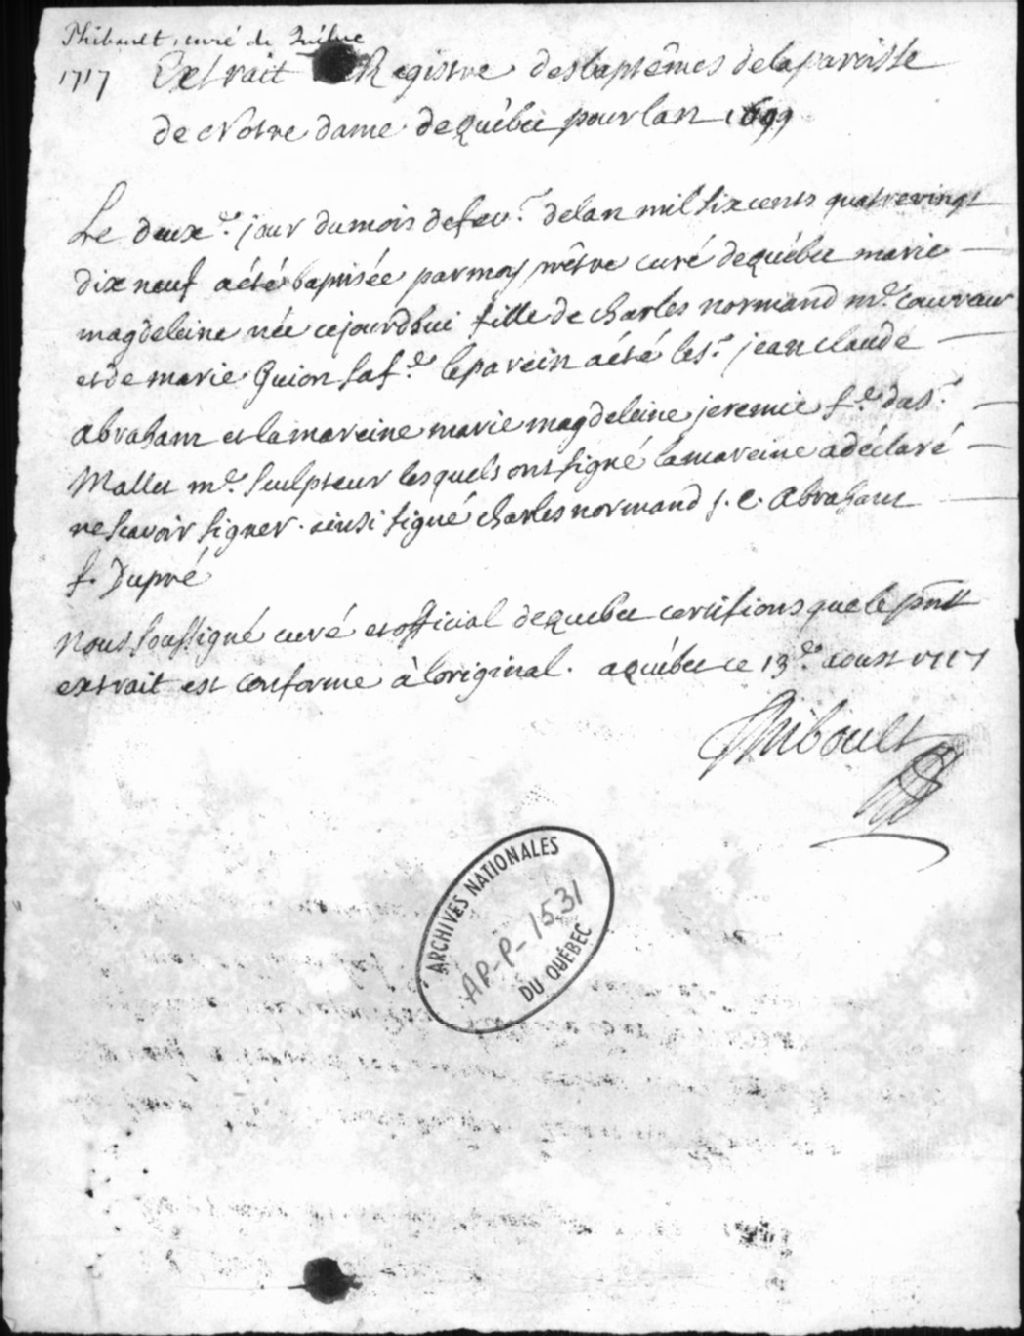 Thibault, curé de Québec
1717 Extrait Registre des baptêmes de la paroisse
de Notre dame de Québec pour lan 1699
Le deuxe. jour du mois de fevr. de lan mil six cents quatre vingt
dix neuf a été baptisée par moy prêtre curé de québec marie
magdeleine née ce jourdhui fille de charles normand me.
et de marie Guion sa fe. le parein a été le sr. jean claude
abraham et la mareine marie magdeleine jeremie fe. du sr.
Mallet me. sculpteur lesquels ont signé la mareine a déclaré
ne scavoir signer. ainsi signé charles normand j. c. abraham
f. Dupré
Nous soussigné curé et official de quebec certifions que le pnt
extrait est conforme à loriginal. a québec ce 13e. aoust 1717
Thiboult
ARCHIVES NATIONALES
AP-P-1531
DU QUÉBEC